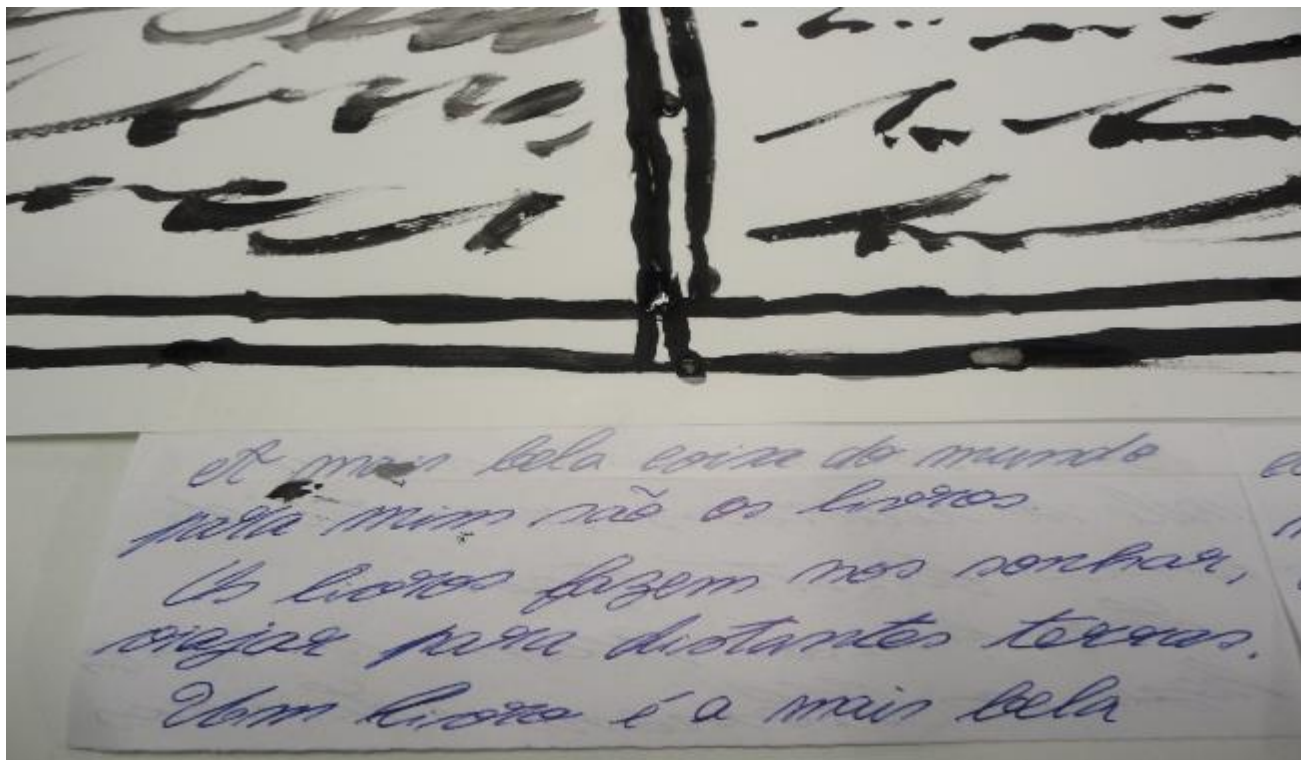 A mais bela coisa do mundo
para mim são os livros.
Os livros fazem nos sonhar,
viajar para distantes terras.
Um livro é a mais bela